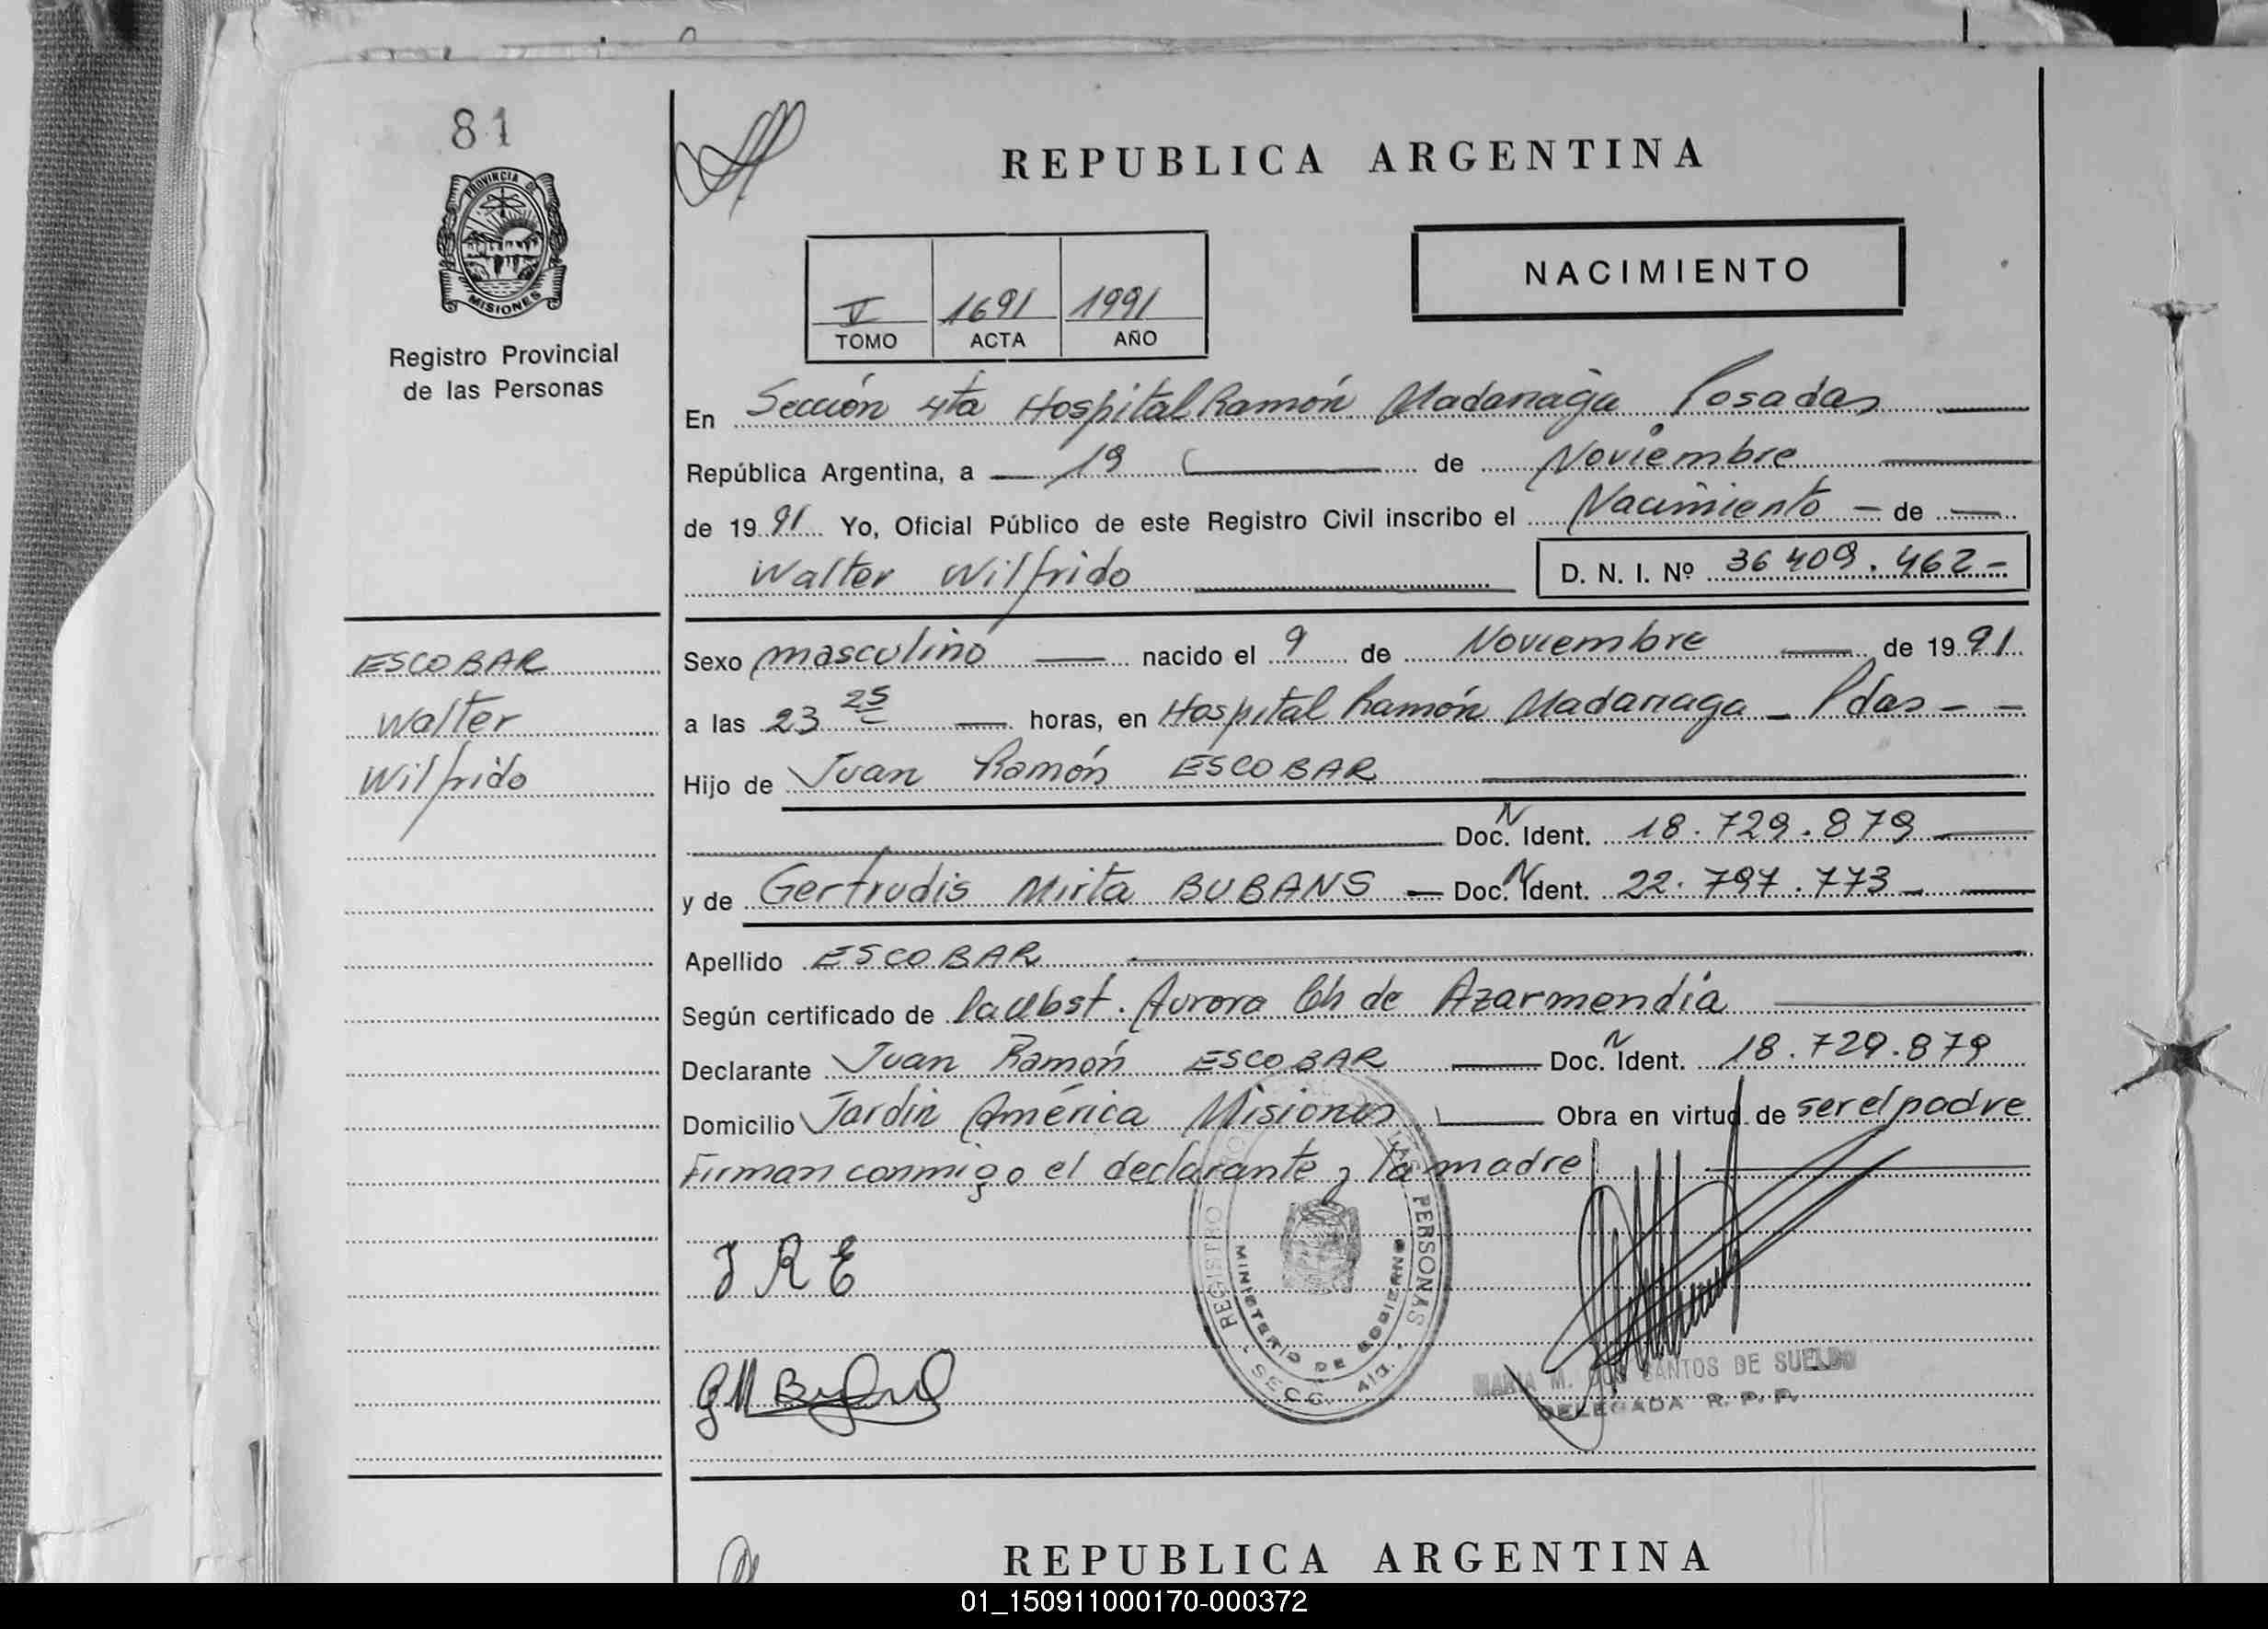 81
PROVINCIA DE
MISIONES
Registro Provincial
de las Personas
REPUBLICA ARGENTINA
NACIMIENTO
V 1691 1991
TOMO ACTA AÑO
En Sección 4ta Hospital Ramón Madariaga Posadas
República Argentina, a 19 de Noviembre
de 1991 Yo, Oficial Público de este Registro Civil inscribo el Nacimiento - de
Walter Wilfrido D. N. I. Nº 36 409.462-
ESCOBAR
Walter
Wilfrido
Sexo masculino nacido el 9 de Noviembre de 1991
a las 23 25 horas, en Hospital Ramón Madariaga - Pdas - -
Hijo de Juan Ramón ESCOBAR
Doc. N Ident. 18.729.879
y de Gertrudis Mirta BUBANS - Doc. N Ident. 22.797.773-
Apellido ESCOBAR
Según certificado de la Obst. Aurora Ch de Azarmendia
Declarante Juan Ramón ESCOBAR Doc. N Ident. 18.729.879
Domicilio Jardin América Misiones Obra en virtud de ser el padre
Firman conmigo el declarante y la madre
J R E
REGISTRO PERSONAS
MINISTERIO DE GOBIERNO
SECC. 4ta.
G M
SANTOS DE SUELDO
DELEGADA R. P. P.
REPUBLICA ARGENTINA
01_150911000170-000372